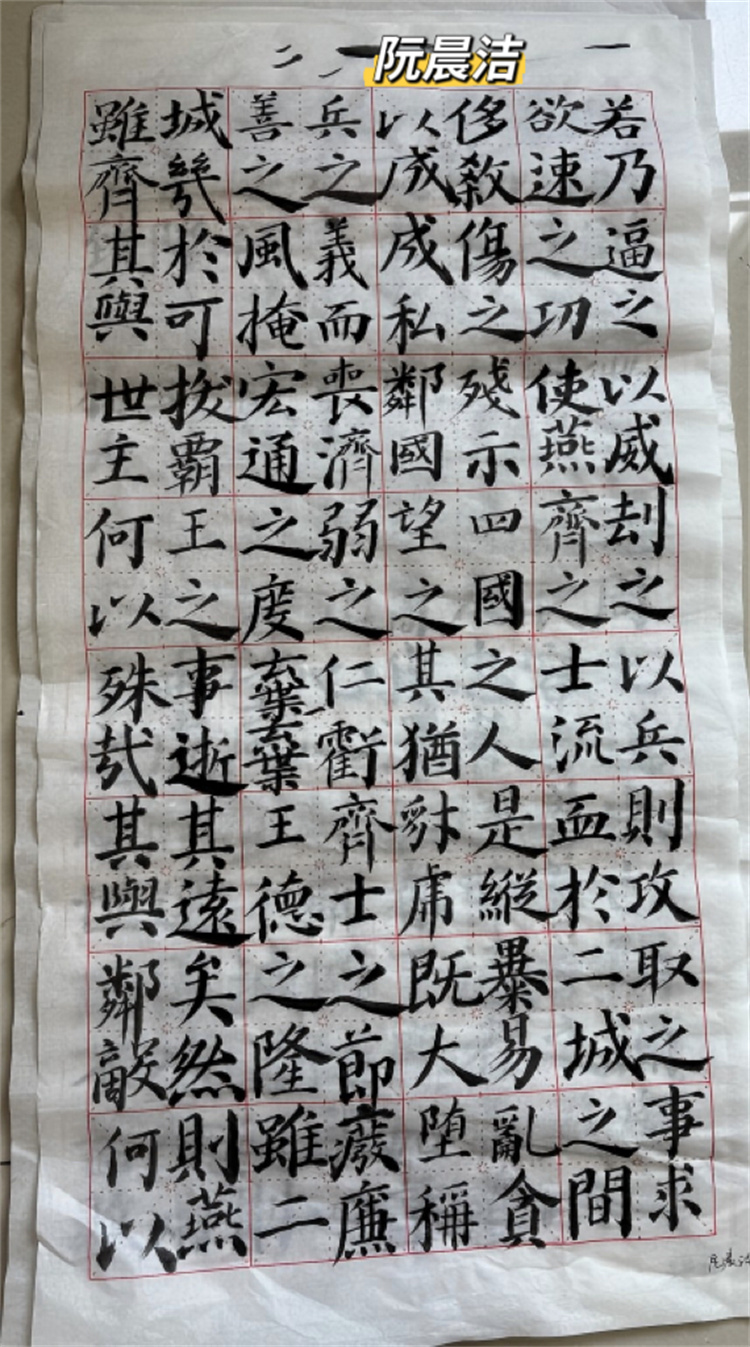 阮晨洁
一
二
若乃逼之以威刦之以兵則攻取之事求
欲速之功使燕齊之士流血於二城之間
侈殺傷之残示四國之人是縱暴易亂貪
以成成私鄰國望之其猶豺虎既大堕稱
兵之義而喪濟弱之仁虧齊士之節廢廉
善之風掩宏通之度棄棄王德之隆雖二
城幾於可拔霸王之事逝其遠矣然則燕
雖齊其與世主何以殊哉其與鄰敵何以